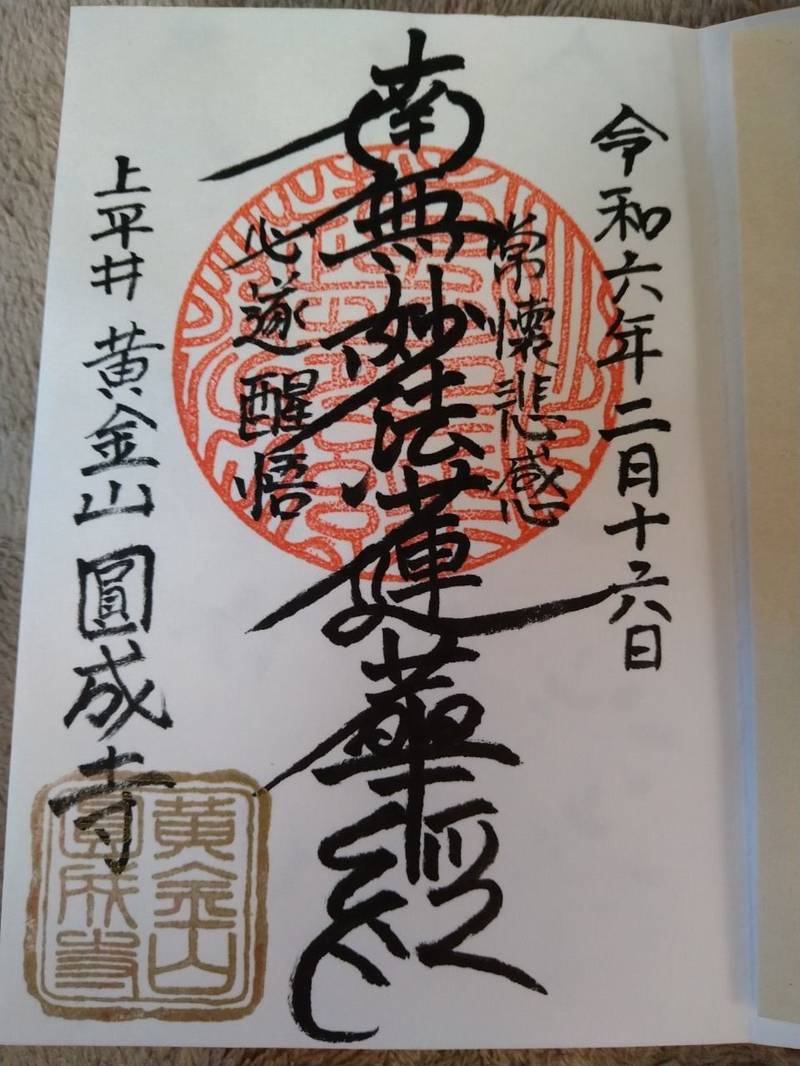 令和六年二月十六日
常懐悲感
南無妙法蓮華經
心遂醒悟
上平井 黄金山 圓成寺
黄金山
圓成寺